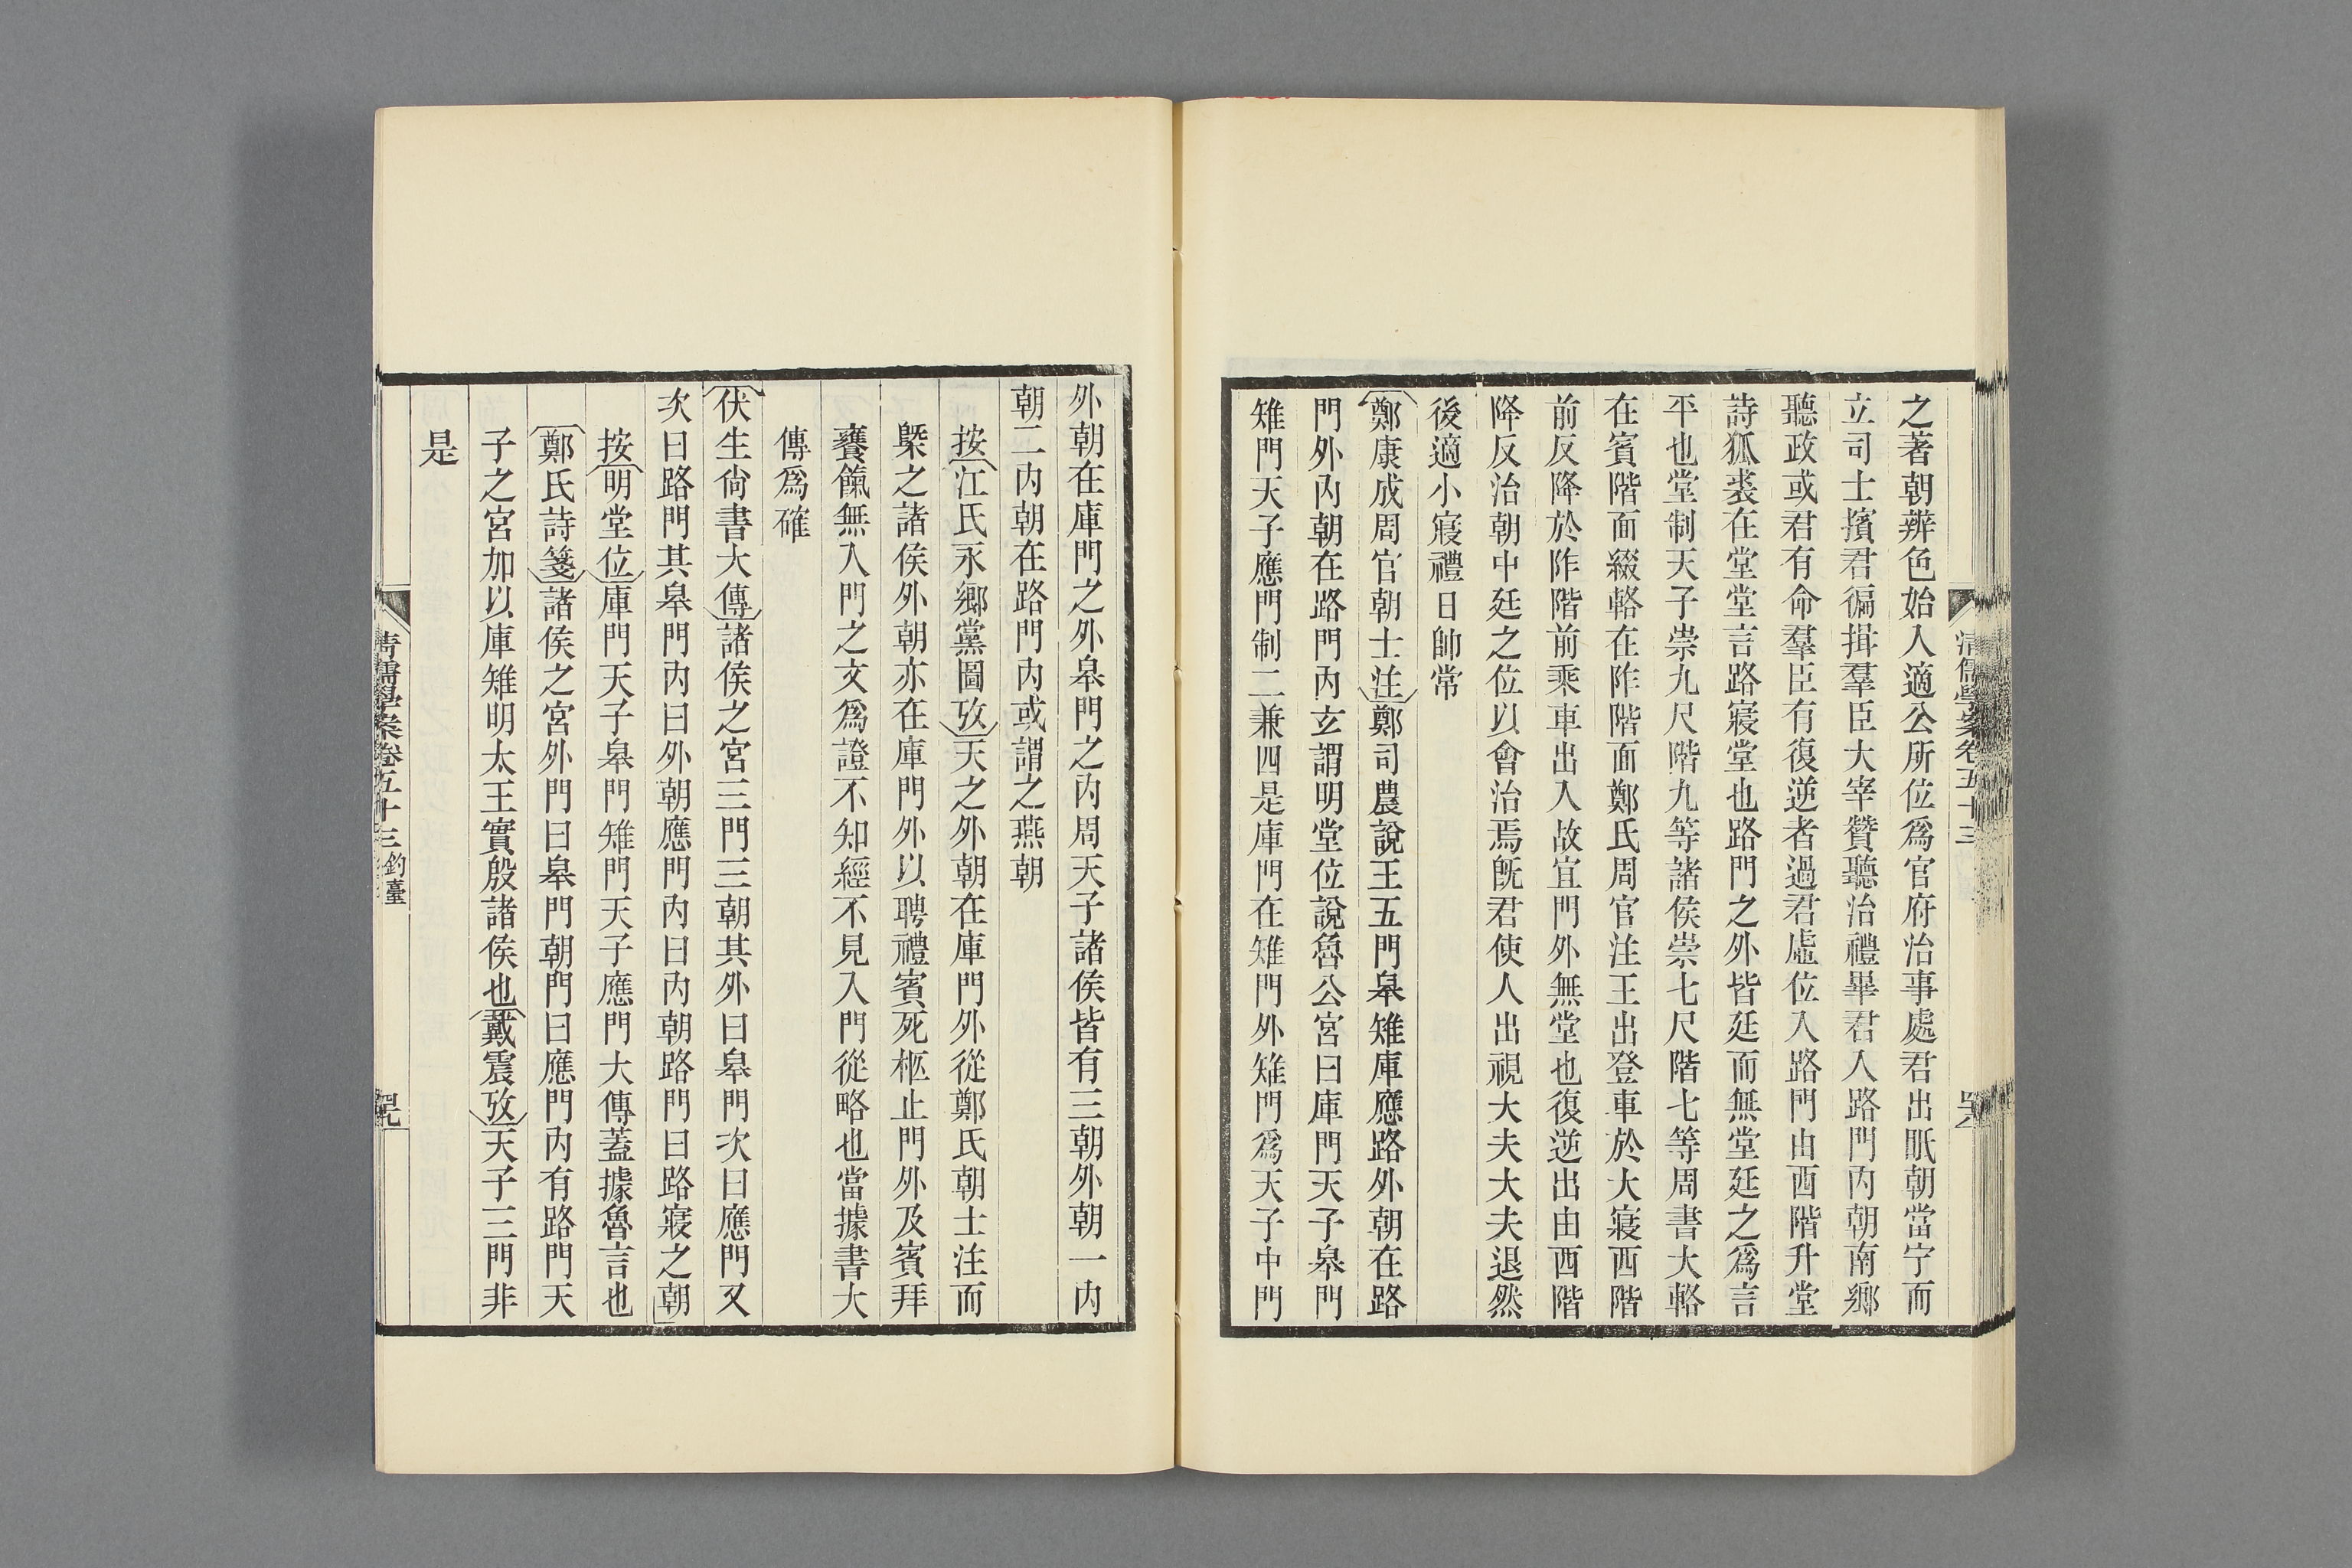 清儒學案卷五十三
之著朝辨色始入適公所位爲官府治事處君出眂朝當宁而
立司士擯君徧揖羣臣大宰贊聽治禮畢君入路門內朝南鄉
聽政或君有命羣臣有復逆者過君虛位入路門由西階升堂
詩狐裘在堂堂言路寢堂也路門之外皆廷而無堂廷之爲言
平也堂制天子崇九尺階九等諸侯崇七尺階七等周書大輅
在賓階面綴輅在阼階面鄭氏周官注王出登車於大寢西階
前反降於阼階前乘車出入故宜門外無堂也復逆出由西階
降反治朝中廷之位以會治焉旣君使人出視大夫大夫退然
後適小寢禮日帥常
鄭康成周官朝士注鄭司農說王五門皋雉庫應路外朝在路
門外內朝在路門內玄謂明堂位說魯公宮曰庫門天子皋門
雉門天子應門制二兼四是庫門在雉門外雉門爲天子中門
外朝在庫門之外皋門之內周天子諸侯皆有三朝外朝一內
朝二內朝在路門內或謂之燕朝
按江氏永鄉黨圖攷天之外朝在庫門外從鄭氏朝士注而
槩之諸侯外朝亦在庫門外以聘禮賓死柩止門外及賓拜
饔餼無入門之文爲證不知經不見入門從略也當據書大
傳爲確
伏生尙書大傳諸侯之宮三門三朝其外曰皋門次曰應門又
次曰路門其皋門內曰外朝應門內曰內朝路門曰路寢之朝
按明堂位庫門天子皋門雉門天子應門大傳蓋據魯言也
鄭氏詩箋諸侯之宮外門曰皋門朝門曰應門內有路門天
子之宮加以庫雉明太王實殷諸侯也戴震攷天子三門非
是
清儒學案卷五十三 鈞臺